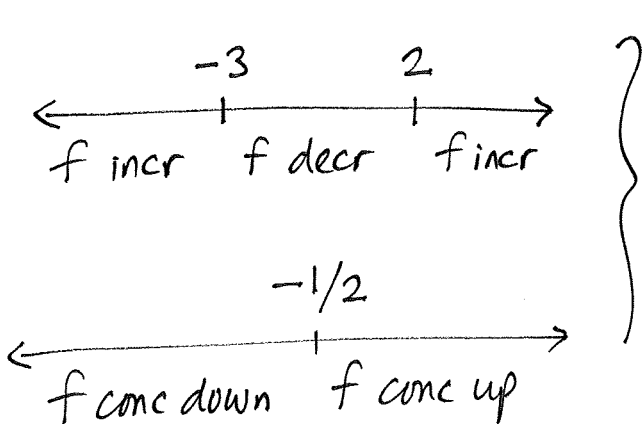 -3 2
f incr f decr f incr
-1/2
f conc down f conc up